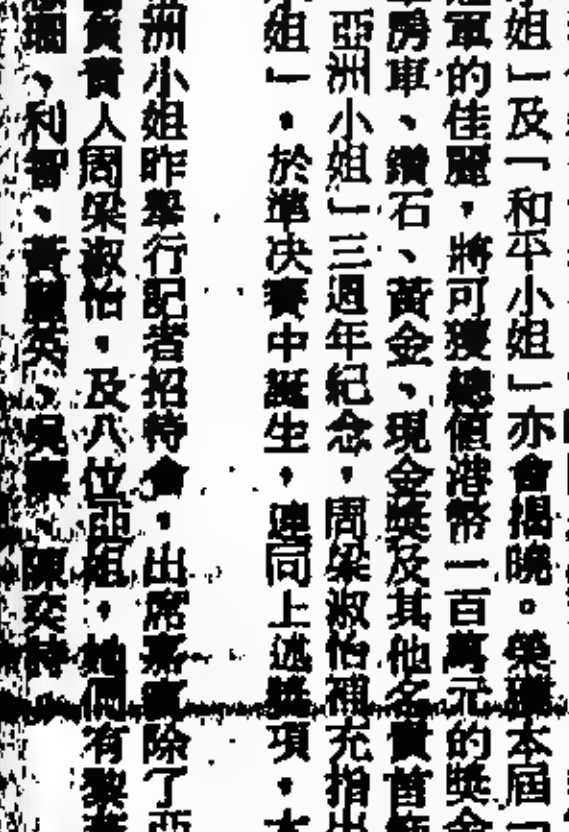 小姐」及「和平小姐」亦會揭曉。榮膺本屆「
冠軍的佳麗，將可獲總值港幣一百萬元的獎金
房車、鑽石、黃金、現金獎及其他名貴首飾
亞洲小姐」三週年紀念，周梁淑怡補充指出
小姐」，於準決賽中誕生，連同上述獎項，本
亞洲小姐昨舉行記者招待會，出席嘉賓除了亞
負責人周梁淑怡，及八位亞姐，她們有黎
、利智、黃麗英、吳、陳奕詩。